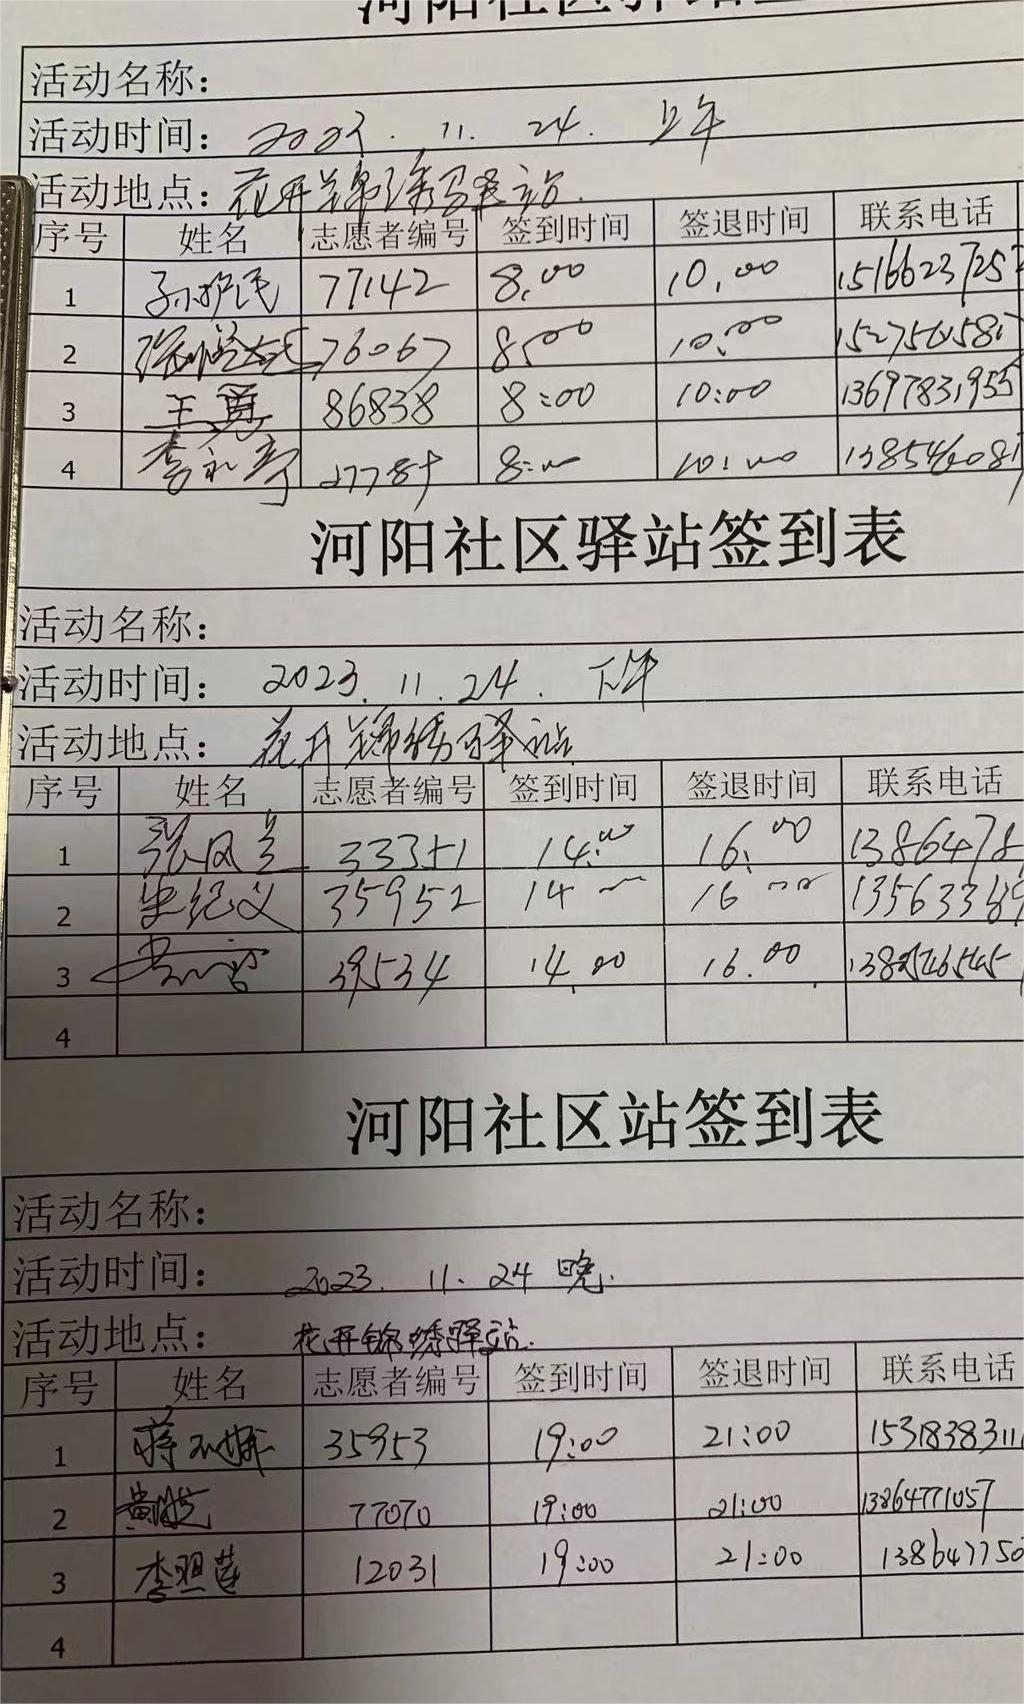 河阳社区驿站签
活动名称：
活动时间：2023.11.24.上午
活动地点：花开锦绣驿站.
序号 姓名 志愿者编号 签到时间 签退时间 联系电话
1 孙护民 77142 8:00 10:00 1516623725
2 76067 8:00 10:00
3 王勇 86838 8:00 10:00 13697831955
4 8:00 10:00
河阳社区驿站签到表
活动名称：
活动时间：2023.11.24.下午
活动地点：花开锦绣驿站
序号 姓名 志愿者编号 签到时间 签退时间 联系电话
1 33351 14:00 16:00 1386478
2 史纪义 35952 14 00 16 00
3 39534 14.00 16.00
4
河阳社区站签到表
活动名称：
活动时间：2023.11.24晚.
活动地点：花开锦绣驿站.
序号 姓名 志愿者编号 签到时间 签退时间 联系电话
1 35953 19:00 21:00 1531838311
2 77070 19:00 21:00 13864771057
3 李照莲 12031 19:00 21:00 138647750
4